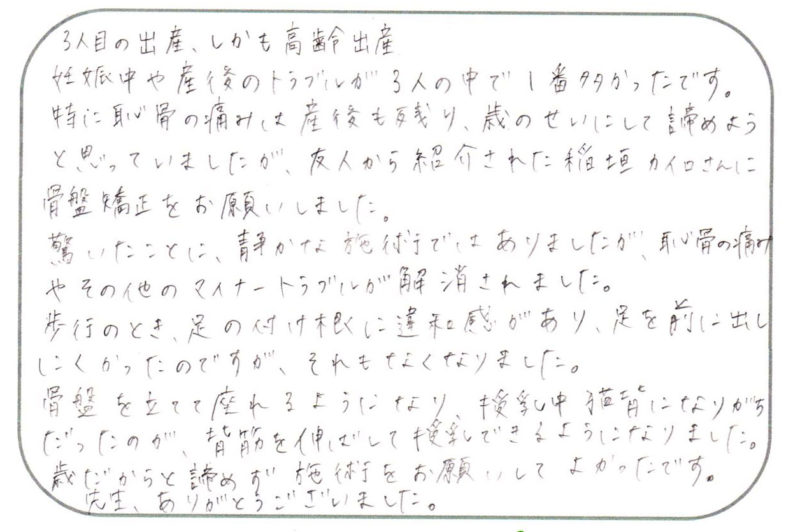 3人目の出産、しかも高齢出産
妊娠中や産後のトラブルが3人の中で1番多かったです。
特に恥骨の痛みは産後も残り、歳のせいにして諦めよう
と思っていましたが、友人から紹介された稲垣カイロさんに
骨盤矯正をお願いしました。
驚いたことに、静かな施術ではありましたが、恥骨の痛み
やその他のマイナートラブルが解消されました。
歩行のとき、足の付け根に違和感があり、足を前に出し
にくかったのですが、それもなくなりました。
骨盤を立てて座れるようになり、授乳中猫背になりがち
だったのが、背筋を伸ばして授乳できるようになりました。
歳だからと諦めず施術をお願いしてよかったです。
先生、ありがとうございました。